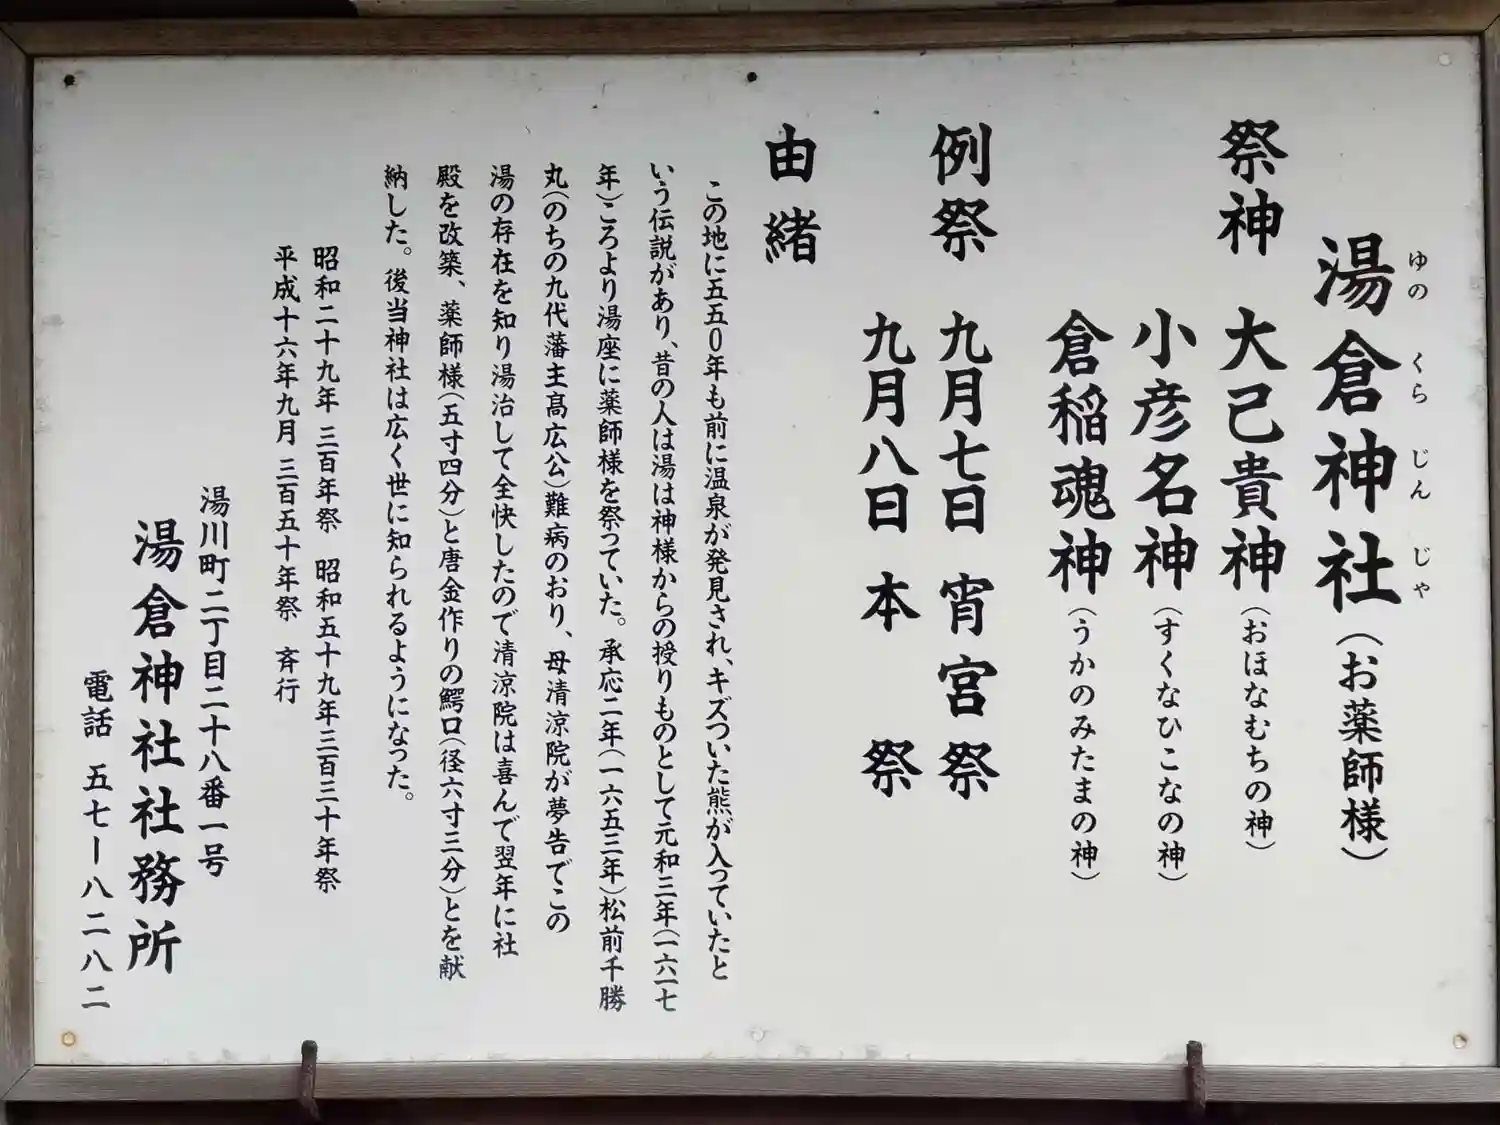 湯倉神社(お薬師様)
ゆの くら じん じゃ
祭神 大己貴神(おほなむちの神)
小彦名神(すくなひこなの神)
倉稲魂神(うかのみたまの神)
例祭 九月七日 宵宮祭
九月八日 本祭
由緒
この地に五五〇年も前に温泉が発見され、キズついた熊が入っていたと
いう伝説があり、昔の人は湯は神様からの授りものとして元和三年(一六一七
年)ころより湯座に薬師様を祭っていた。承応二年(一六五三年)松前千勝
丸(のちの九代藩主高広公)難病のおり、母清涼院が夢告でこの
湯の存在を知り湯治して全快したので清涼院は喜んで翌年に社
殿を改築、薬師様(五寸四分)と唐金作りの鰐口(径六寸三分)とを献
納した。後当神社は広く世に知られるようになった。
昭和二十九年 三百年祭 昭和五十九年三百三十年祭
平成十六年九月 三百五十年祭 斉行
湯川町二丁目二十八番一号
湯倉神社社務所
電話 五七ー八二八二